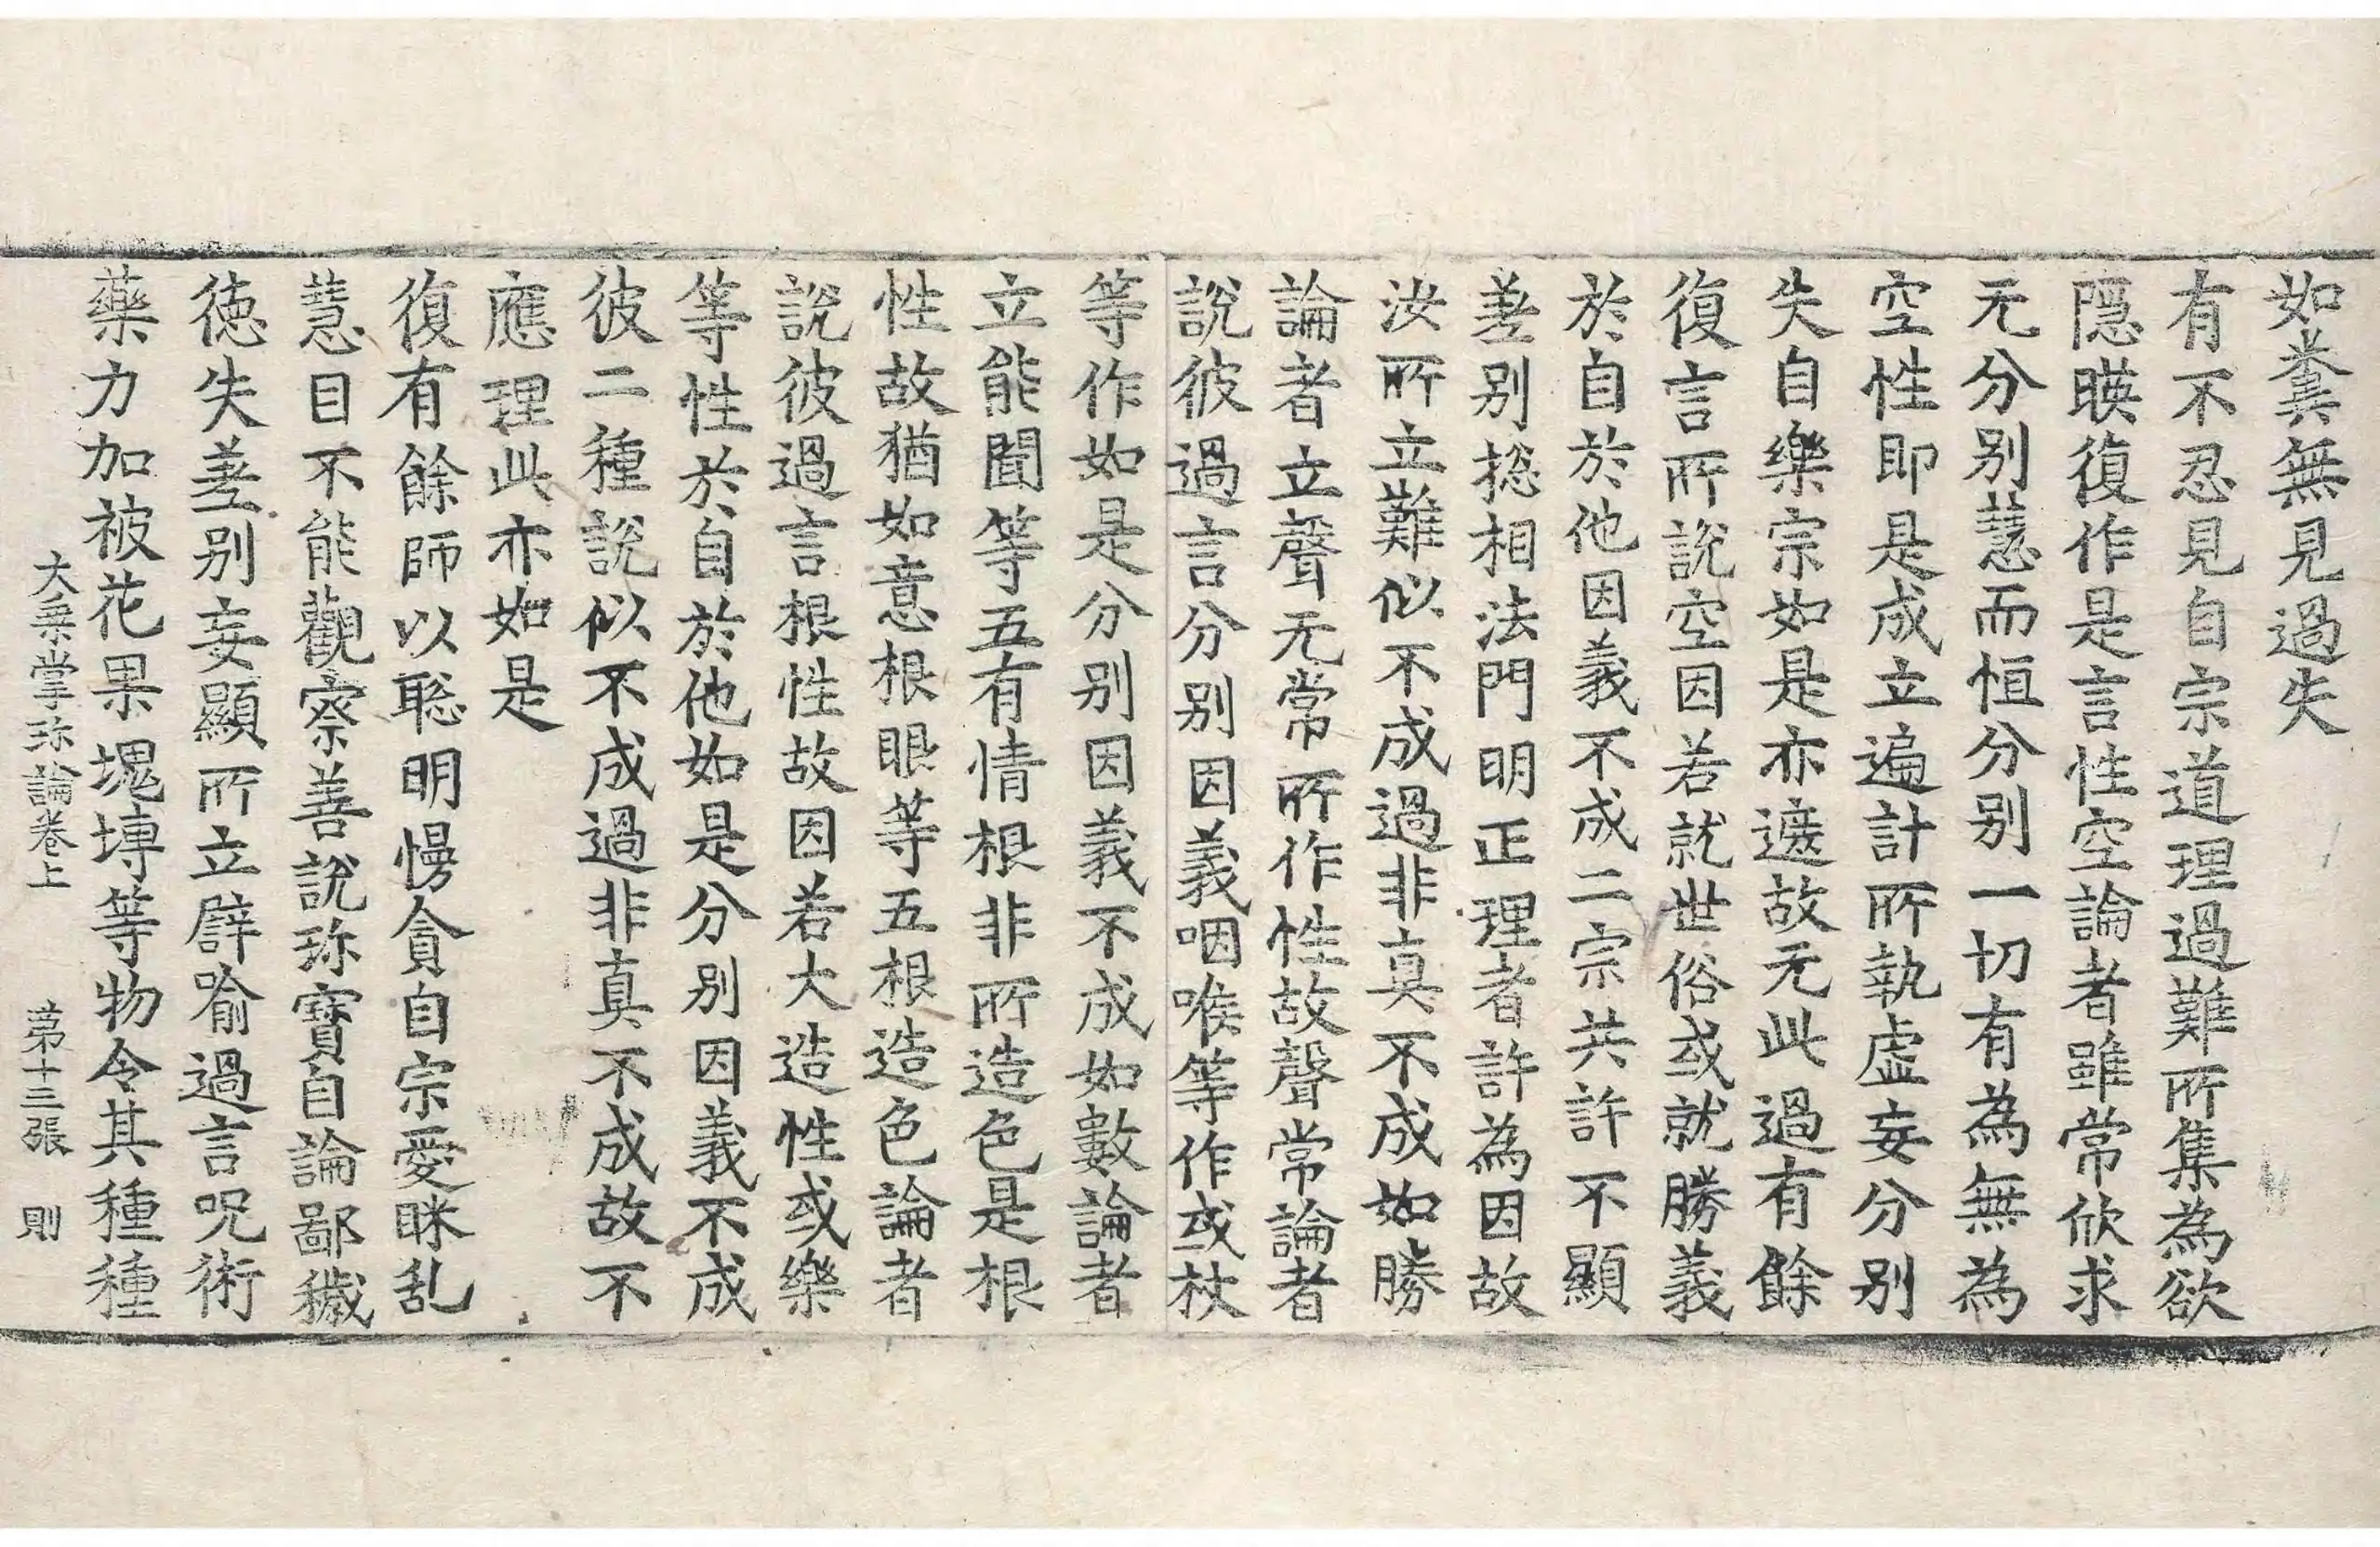 如糞無見過失
有不忍見自宗道理過難所集為欲
隱暎復作是言性空論者雖常欣求
无分别慧而恒分别一切有為無為
空性即是成立遍計所執虛妄分别
失自樂宗如是亦遮故无此過有餘
復言所說空因若就世俗或就勝義
於自於他因義不成二宗共許不顯
差别揔相法門明正理者許為因故
汝所立難似不成過非真不成如勝
論者立聲无常所作性故聲常論者
說彼過言分别因義咽喉等作或杖
等作如是分别因義不成如數論者
立能聞等五有情根非所造色是根
性故猶如意根眼等五根造色論者
說彼過言根性故因若大造性或樂
等性於自於他如是分别因義不成
彼二種說似不成過非真不成故不
應理此亦如是
復有餘師以聡明慢貪自宗愛眯乱
慧目不能觀察善說珎寶自論鄙穢
徳失差别妄顯所立譬喻過言呪術
藥力加被花果塊塼等物令其種種
大乗掌珎論卷上 苐十三張 則